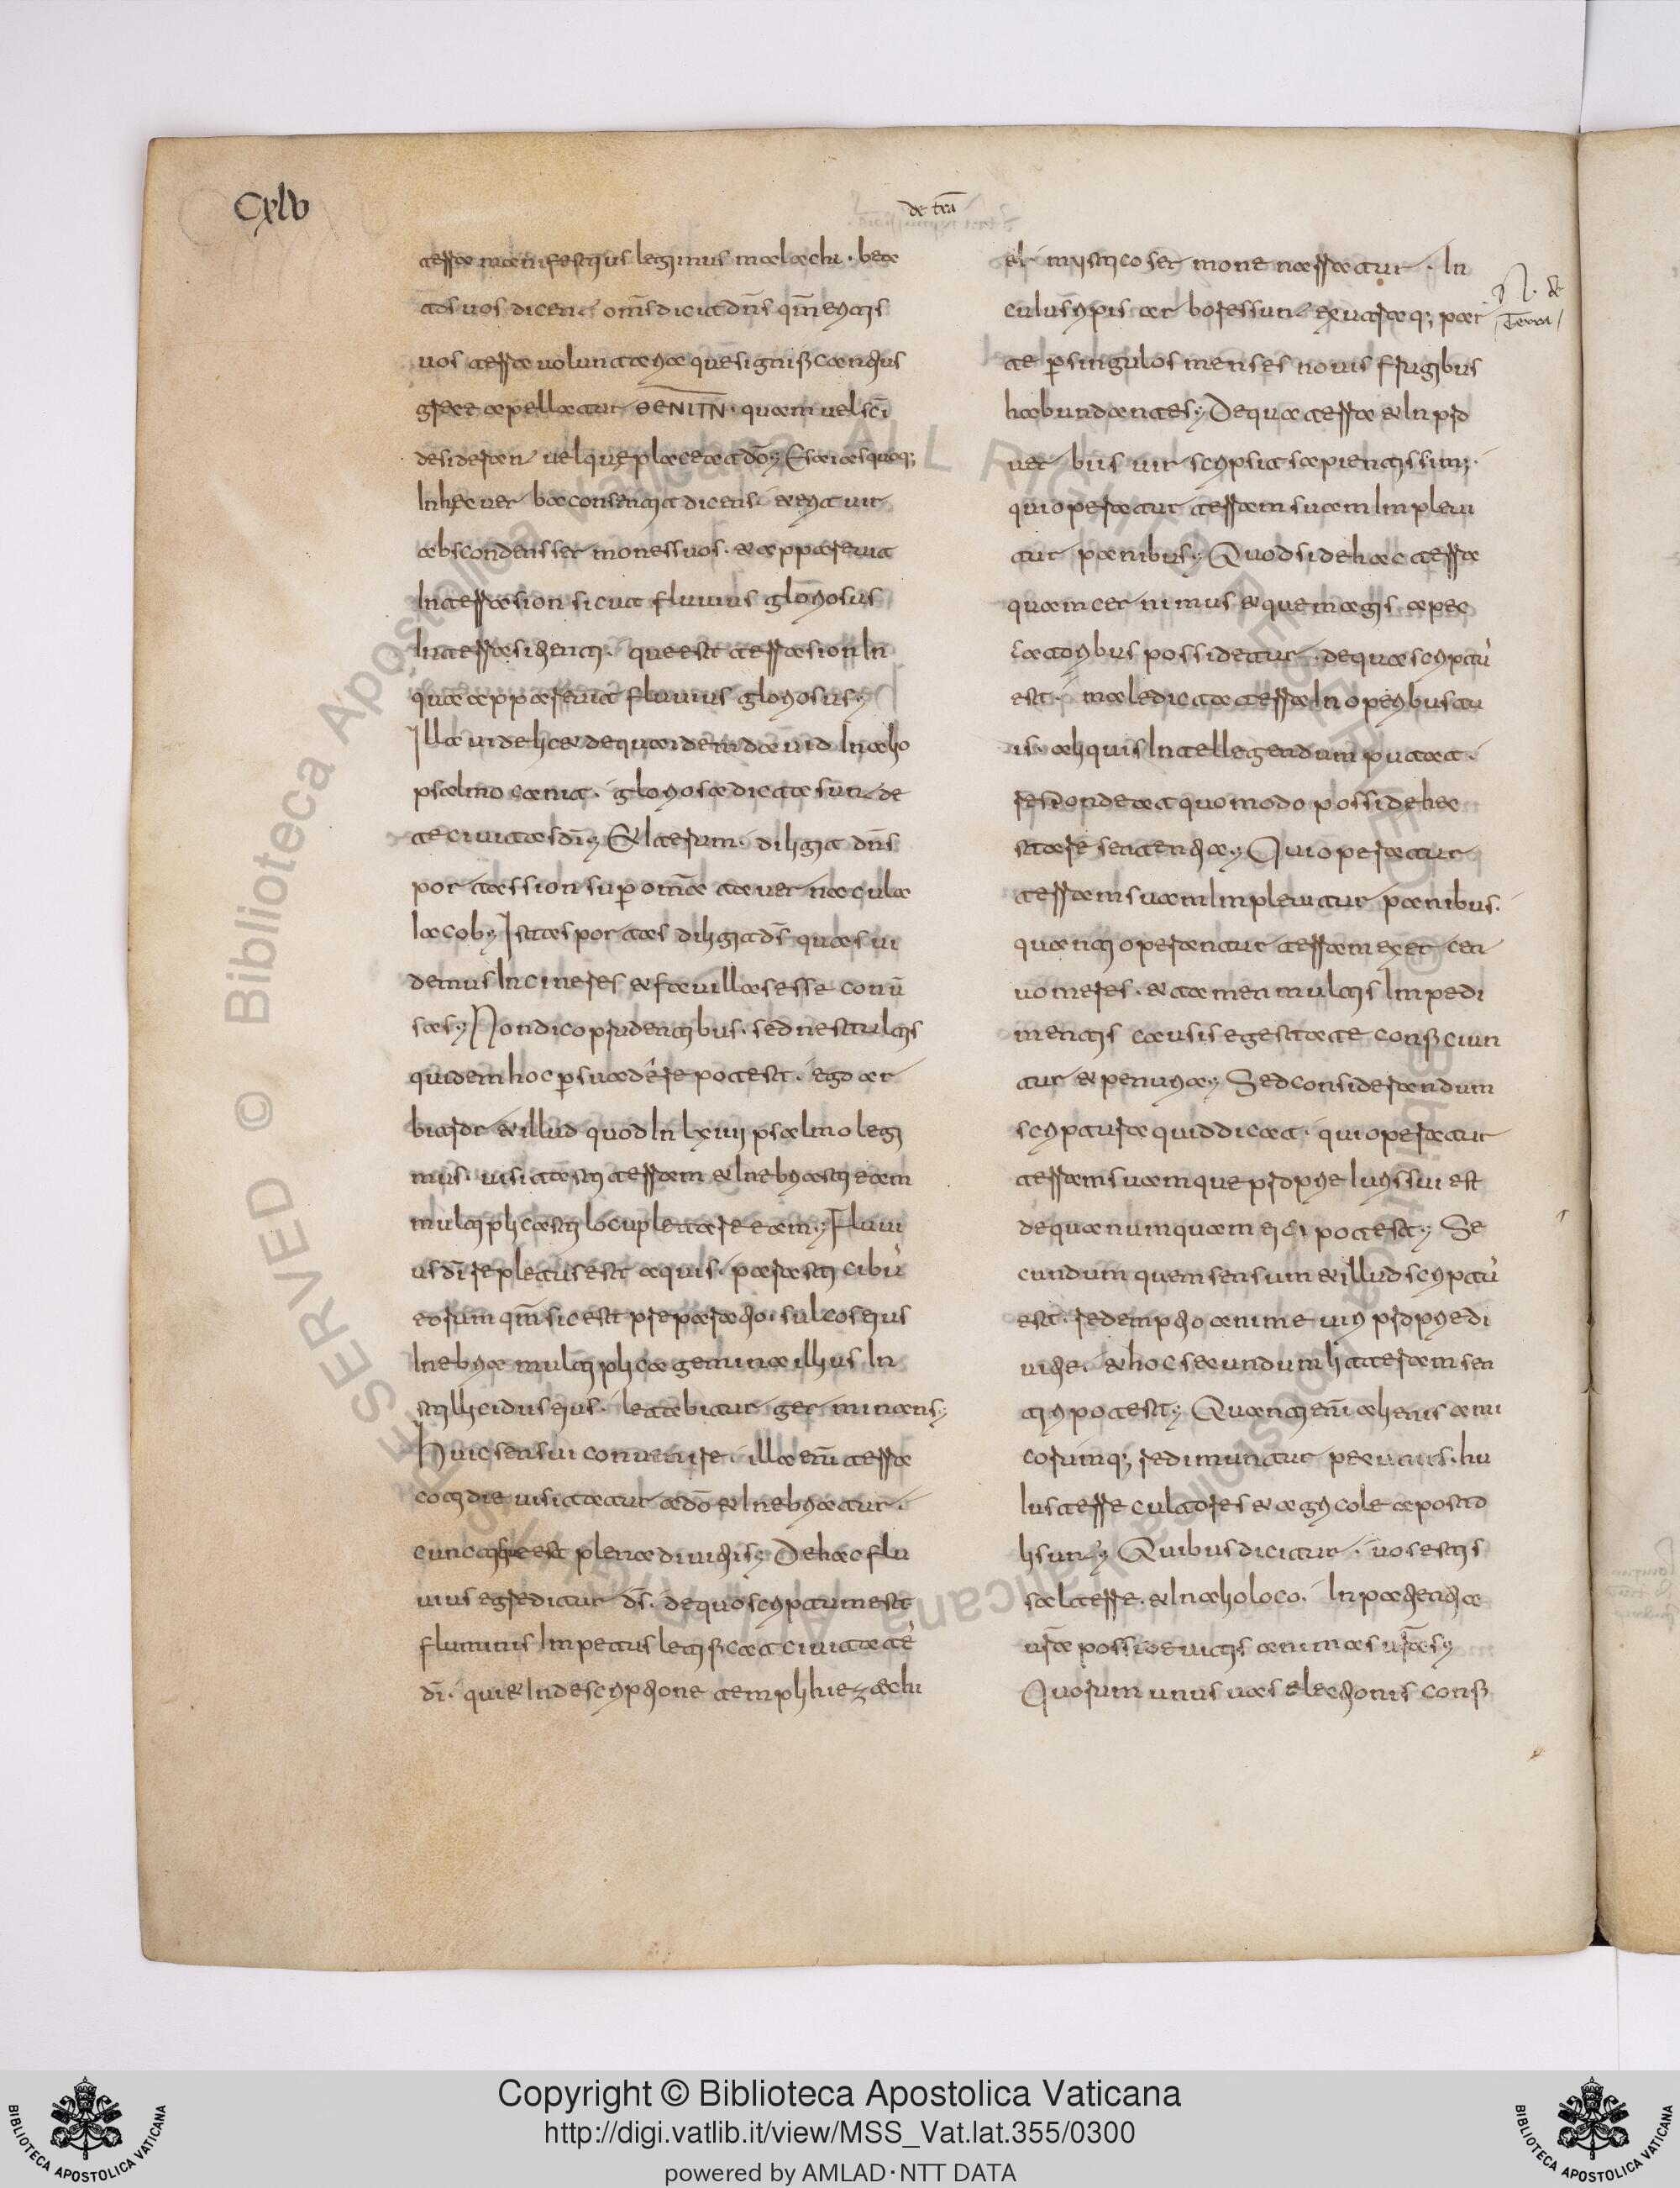 Cxlv
de trā
terra manifestius legimus malachi. bea
tos uos dicent om̄s dicit dn̄s qm̄ eritis
uos terra uoluntaria que significantius
grece apellatur ΘΕΝΙΤΝ. quam uel sc̄i
desiderant uel que placeat dō; Esaias quoq;
In hec uerba consentit dicens. & erit uir
abscondens sermones suos. & apparebit
In terra sion sicut fluuius glōriosus
In terra sitienti. que est terra sion In
qua apparebit fluuius gloriosus;
Illa uidelic& de qua idem dauid In alio
psalmo canit. gloriosa dicta sunt de
te ciuitas dī; Et Iterum. diligit dn̄s
portas sion sup om̄a tabernacula
Iacob; Istas portas diligit ds̄ quas ui
demus In cineres & fauillas esse conū
sas; Non dico prudentibus. sed ne stultis
quidem hoc p̱suaderi potest. ego ar
bitror & illud quod In lxiiii psalmo legi
mus. uisitasti terram & Inebriasti eam
multiplicasti locupletare eam; Fluui
us dī repletus est aquis. parasti cibū
eorum qm̄ sic est preparatio. sulcos eius
Inebria multiplica genimina illius In
stillicidiis eius. letabitur germinans;
Huic sensui conuenire. illa eni̅ terra
cotidie uisitatur a dō & Inebriatur.
cunctisque est plena diuitiis; De hac flu
uius egreditur dī. de quo scriptum est
fluminis Impetus letificat ciuitatē
dī. qui & In descriptione templi hiezechi
el mystico sermone narratur. In
cuius ripis arbores sunt ex utraq; par
te p̱ singulos menses nouis frugibus
habundantes; De qua terra & In pro
uerbiis uir scripsit sapientissimus.
qui operatur terram suam Impleui
tur panibus; Quod si de hac terra
quam cernimus & que magis a pec
catoribus possidetur. de qua scriptū
est. maledicta terra In operibus tu
is. aliquis Intellegendum putat.
respondeat quomodo possit hec
stare sententia; Qui operatur
terram suam Impleuitur panibus.
quanti operantur terram exercen
uomeres. & tamen multis Impedi
mentis causis egestate conficiun
tur & penuria; Sed considerandum
scriptura quid dicat. qui operatur
terram suam que proprie Iuris sui est
de qua numquam eici potest; Se
cundum quem sensum & illud scriptū
est. redemptio anime uiri proprie di
uitie. & hoc secundum litteram sen
tiri potest; Quanti eni̅ alienis ami
corumq; redimuntur pecuniis. hu
Ius terre cultores & agricole aposto
li sunt; Quibus dicitur. uos estis
sal terre. & In alio loco. In patientia
ur̄a possidebitis animas ur̄as;
Quorum unus uas electionis confi
N. de
Terra
Copyright © Biblioteca Apostolica Vaticana
http://digi.vatlib.it/view/MSS_Vat.lat.355/0300
powered by AMLAD·NTT DATA
BIBLIOTECA APOSTOLICA VATICANA
BIBLIOTECA APOSTOLICA VATICANA